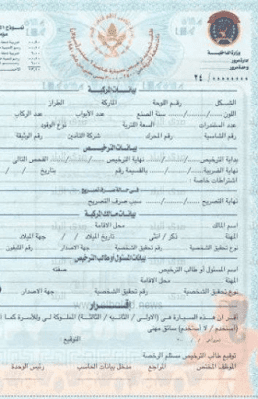 وزارة الداخلية
بيانات المركبة
الشكل رقم اللوحة الماركة الطراز
اللون سنة الصنع عدد الأبواب عدد الركاب
عدد السلندرات السعة اللترية نوع الوقود
رقم الشاسية رقم المحرك شركة التأمين رقم الوثيقة
بيانات الترخيص
بداية الترخيص / / نهاية الترخيص / / الفحص التالي
نهاية الضريبة / / والقسيمة رقم بتاريخ / /
اشتراطات خاصة
نهاية التصريح / / سبب صرف التصريح
بيانات مالك المركبة
اسم المالك محل الاقامة
المهنة ذكر / أنثى تاريخ الميلاد / / جهة الميلاد
نوع تحقيق الشخصية رقم تحقيق الشخصية جهة الاصدار رقم التليفون
بيانات المسئول أو طالب الترخيص
اسم المسئول أو طالب الترخيص صفته
المهنة محل الاقامة
نوع تحقيق الشخصية رقم تحقيق الشخصية جهة الاصدار
إقــــــرار
أقر أن هذه السيارة هي (الأولى / الثانية / الثالثة) المملوكة لي وللأسرة كما
(أستخدم / لا أستخدم) سائق مهني
توقيع طالب الترخيص مستلم الرخصة
الموظف المختص المراجع مدخل بيانات الحاسب رئيس الوحدة